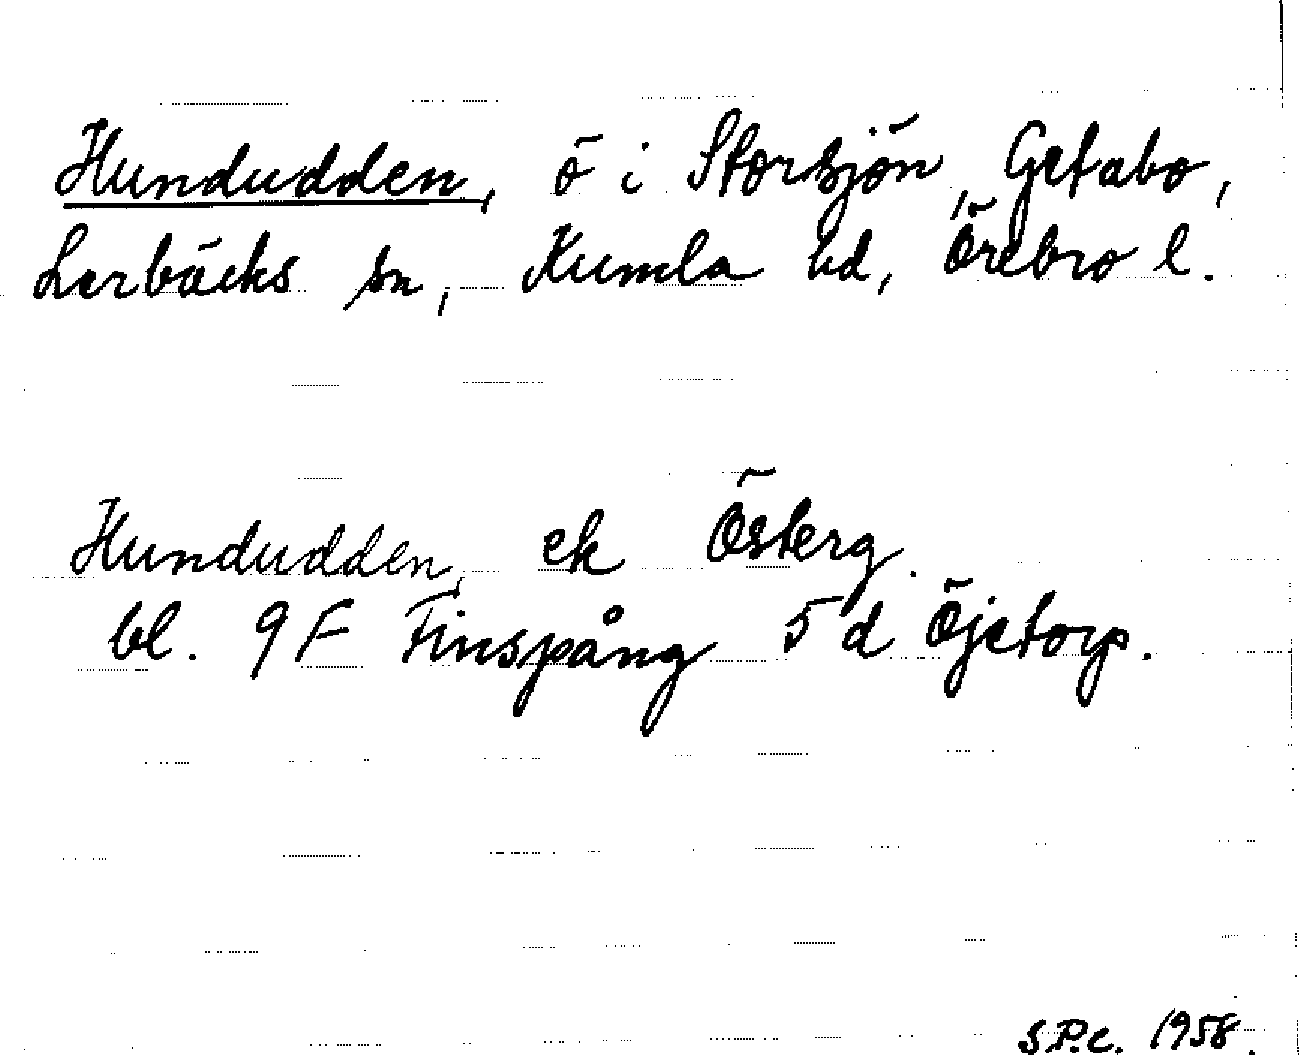 Hundudden, ö i Storsjön, Getabo,
Lerbäcks sn, Kumla hd, Örebro l.
Hundudden, ek Österg.
bl. 9F Finspång 5 d Öjetorp.
S.P.C. 1958.